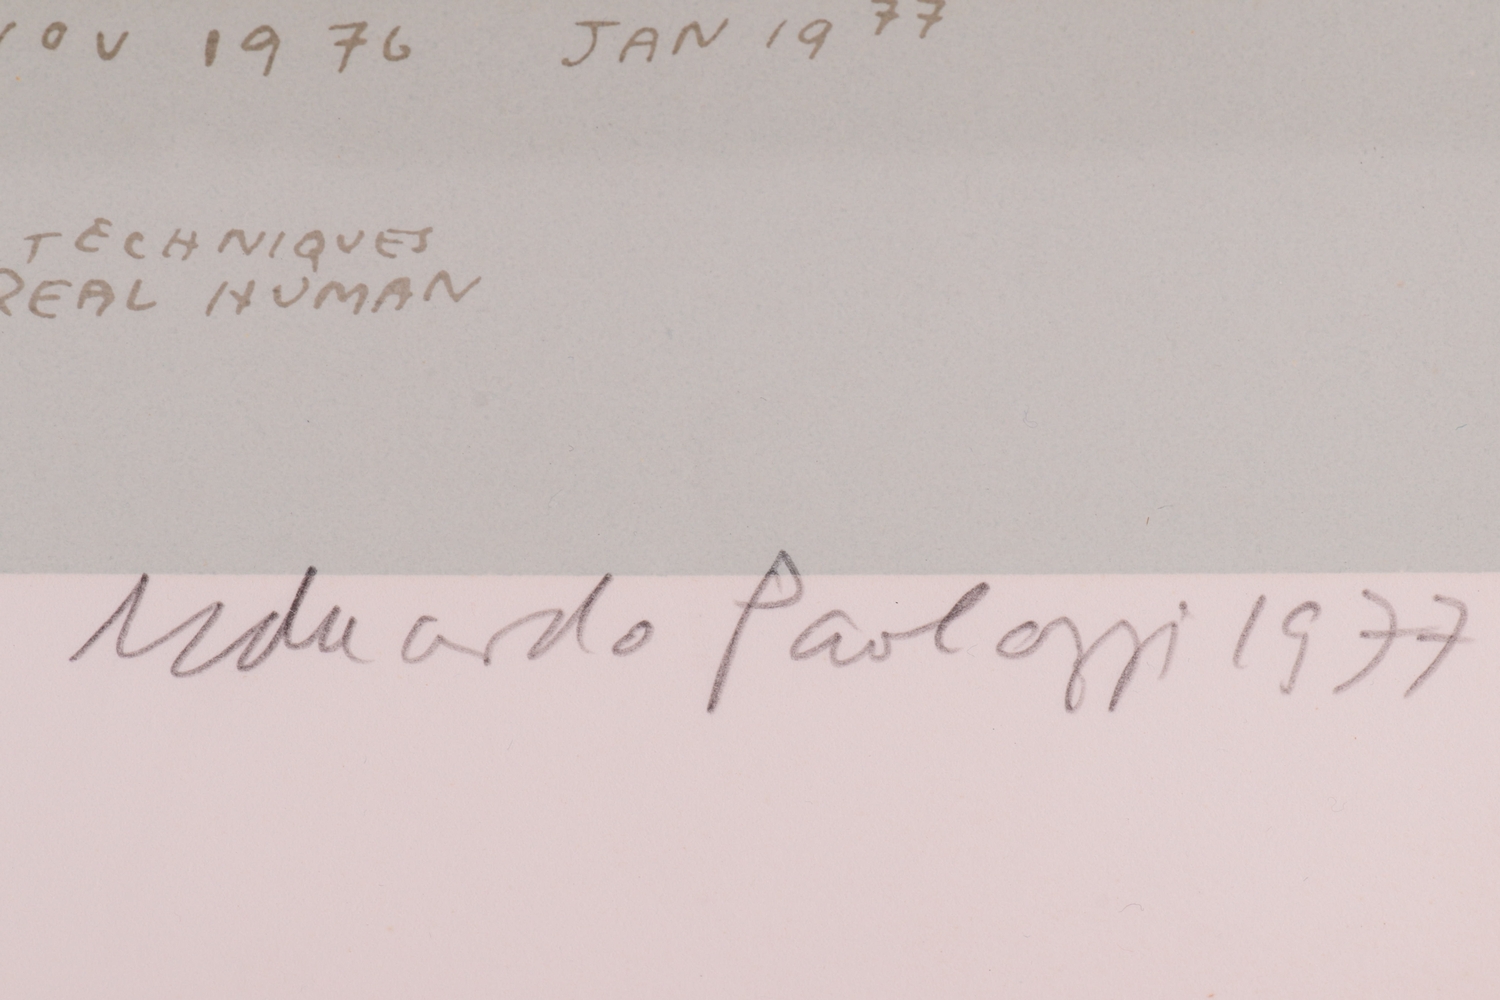 NOV 1976 JAN 1977
TECHNIQUES
REAL HUMAN
Eduardo Paolozzi 1977